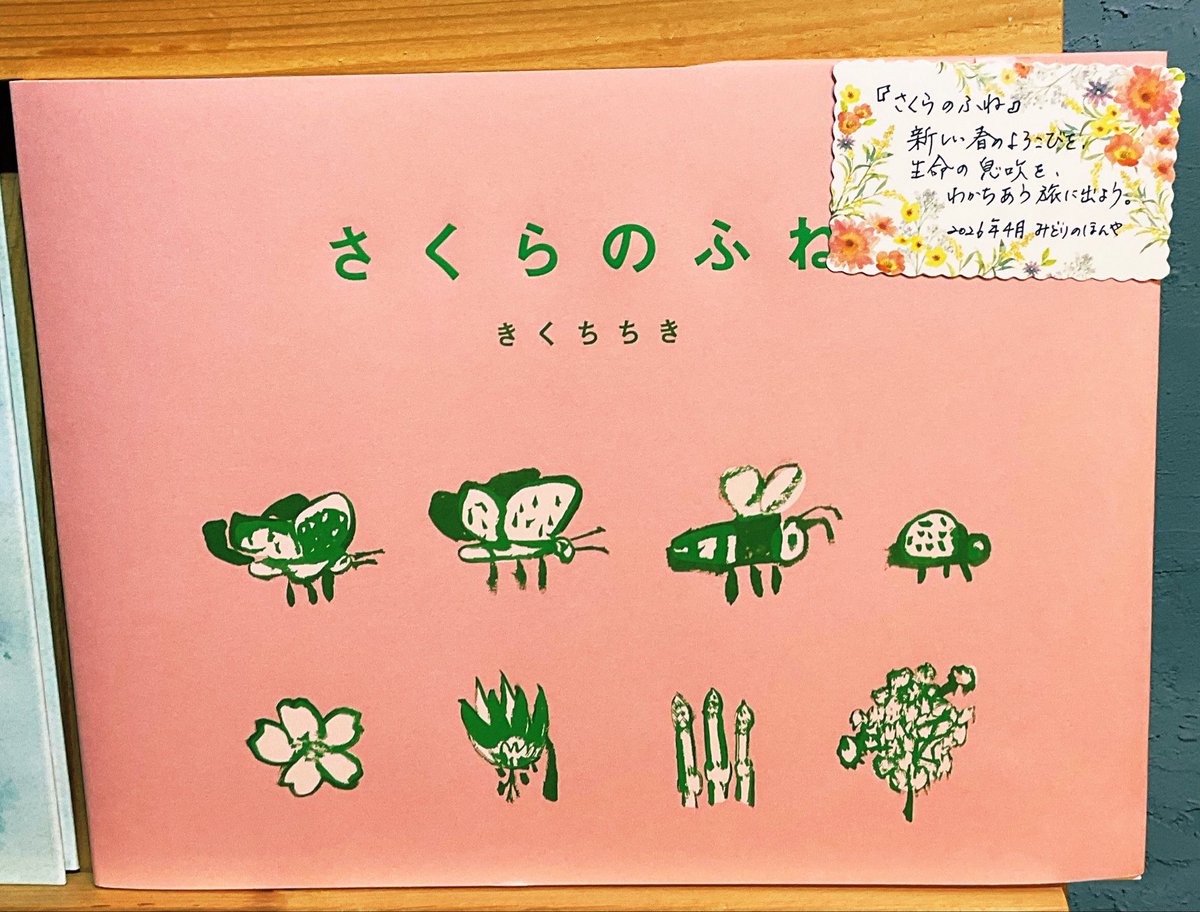 さくらのふね
きくちちき
『さくらのふね』
新しい春のよろこびを、
生命の息吹を、
わかちあう旅に出よう。
2026年4月 みどりのほんや